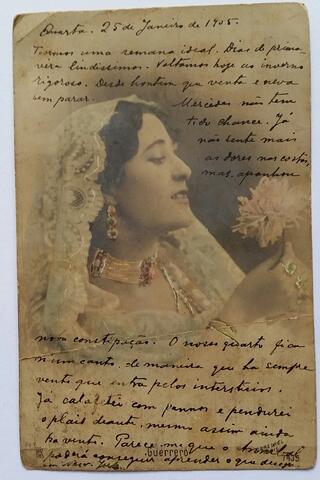 Quarta. 25 de Janeiro de 1905.
Tivemos uma semana ideal. Dias de prima
vera lindissimos. Voltamos hoje ao inverno
rigoroso. Desde hontem que venta e neva
sem parar.
Mercedes não tem
tido chance. Já
não sente mais
as dores nas costas,
mas apanhou
nova constipação. O nosso quarto fica
n'um canto, de maneira que ha sempre
vento que entra pelos intersticios.
Já calafetei com pannos e pendurei
o plaid deante, mesmo assim ainda
ha vento. Parece-me que o
poderá conseguir aprender o que deseja
em New-York.
Guerrero